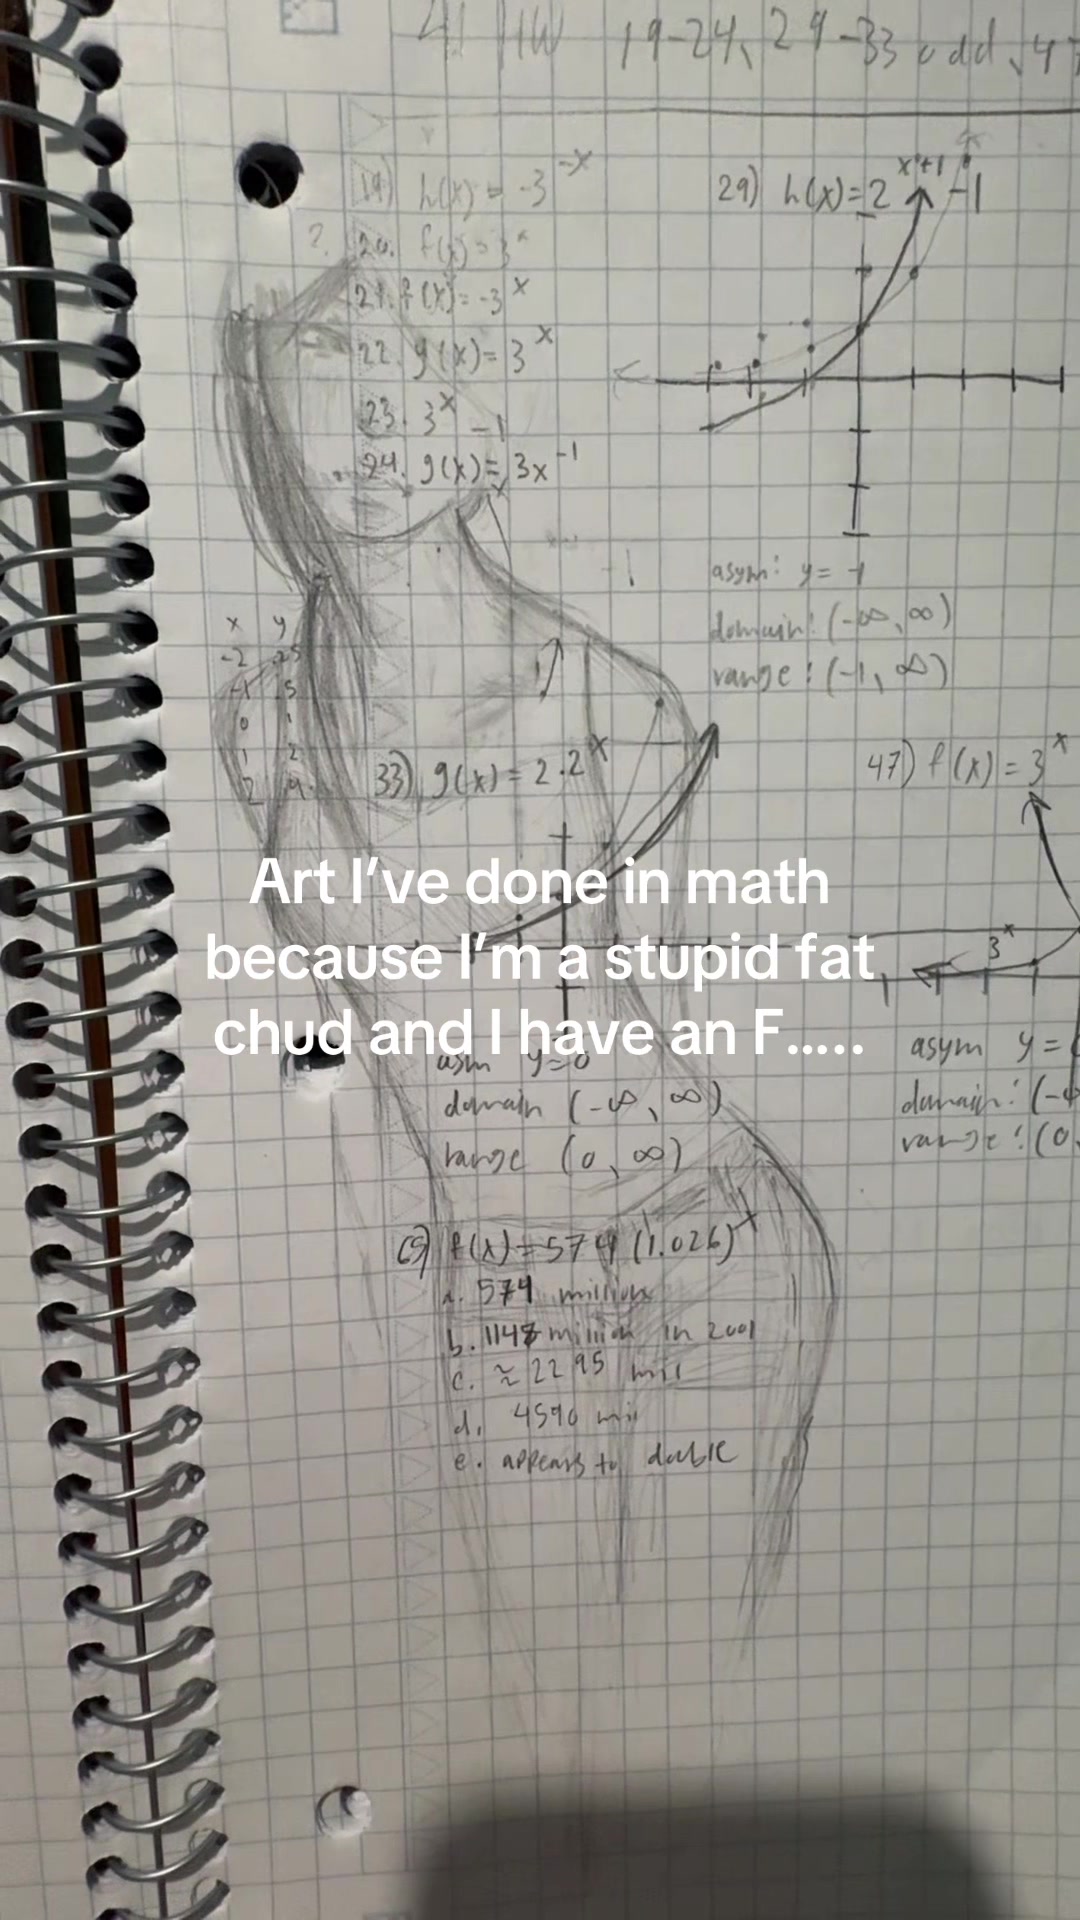 4.1 HW 19-24, 29-33 odd, 47
19) h(x) = -3^-x
? 20. f(x) = 3^x
21. f(x) = -3^x
22. g(x) = 3^x
23. 3^x - 1
24. g(x) = 3x^-1
29) h(x) = 2^x+1 - 1
asym: y = -1
domain: (-∞, ∞)
range: (-1, ∞)
x y
-2 .25
-1 .5
0 1
1 2
2 4
33) g(x) = 2·2^x
47) f(x) = 3^x
3^x
Art I've done in math
because I'm a stupid fat
chud and I have an F.....
asym y=0
domain (-∞, ∞)
range (0, ∞)
asym y =
domain: (-∞
range: (0,
65) f(x) = 574 (1.026)^x
a. 574 million
b. 1148 million in 2001
c. ≈ 2295 mil
d. 4590 mil
e. appears to double